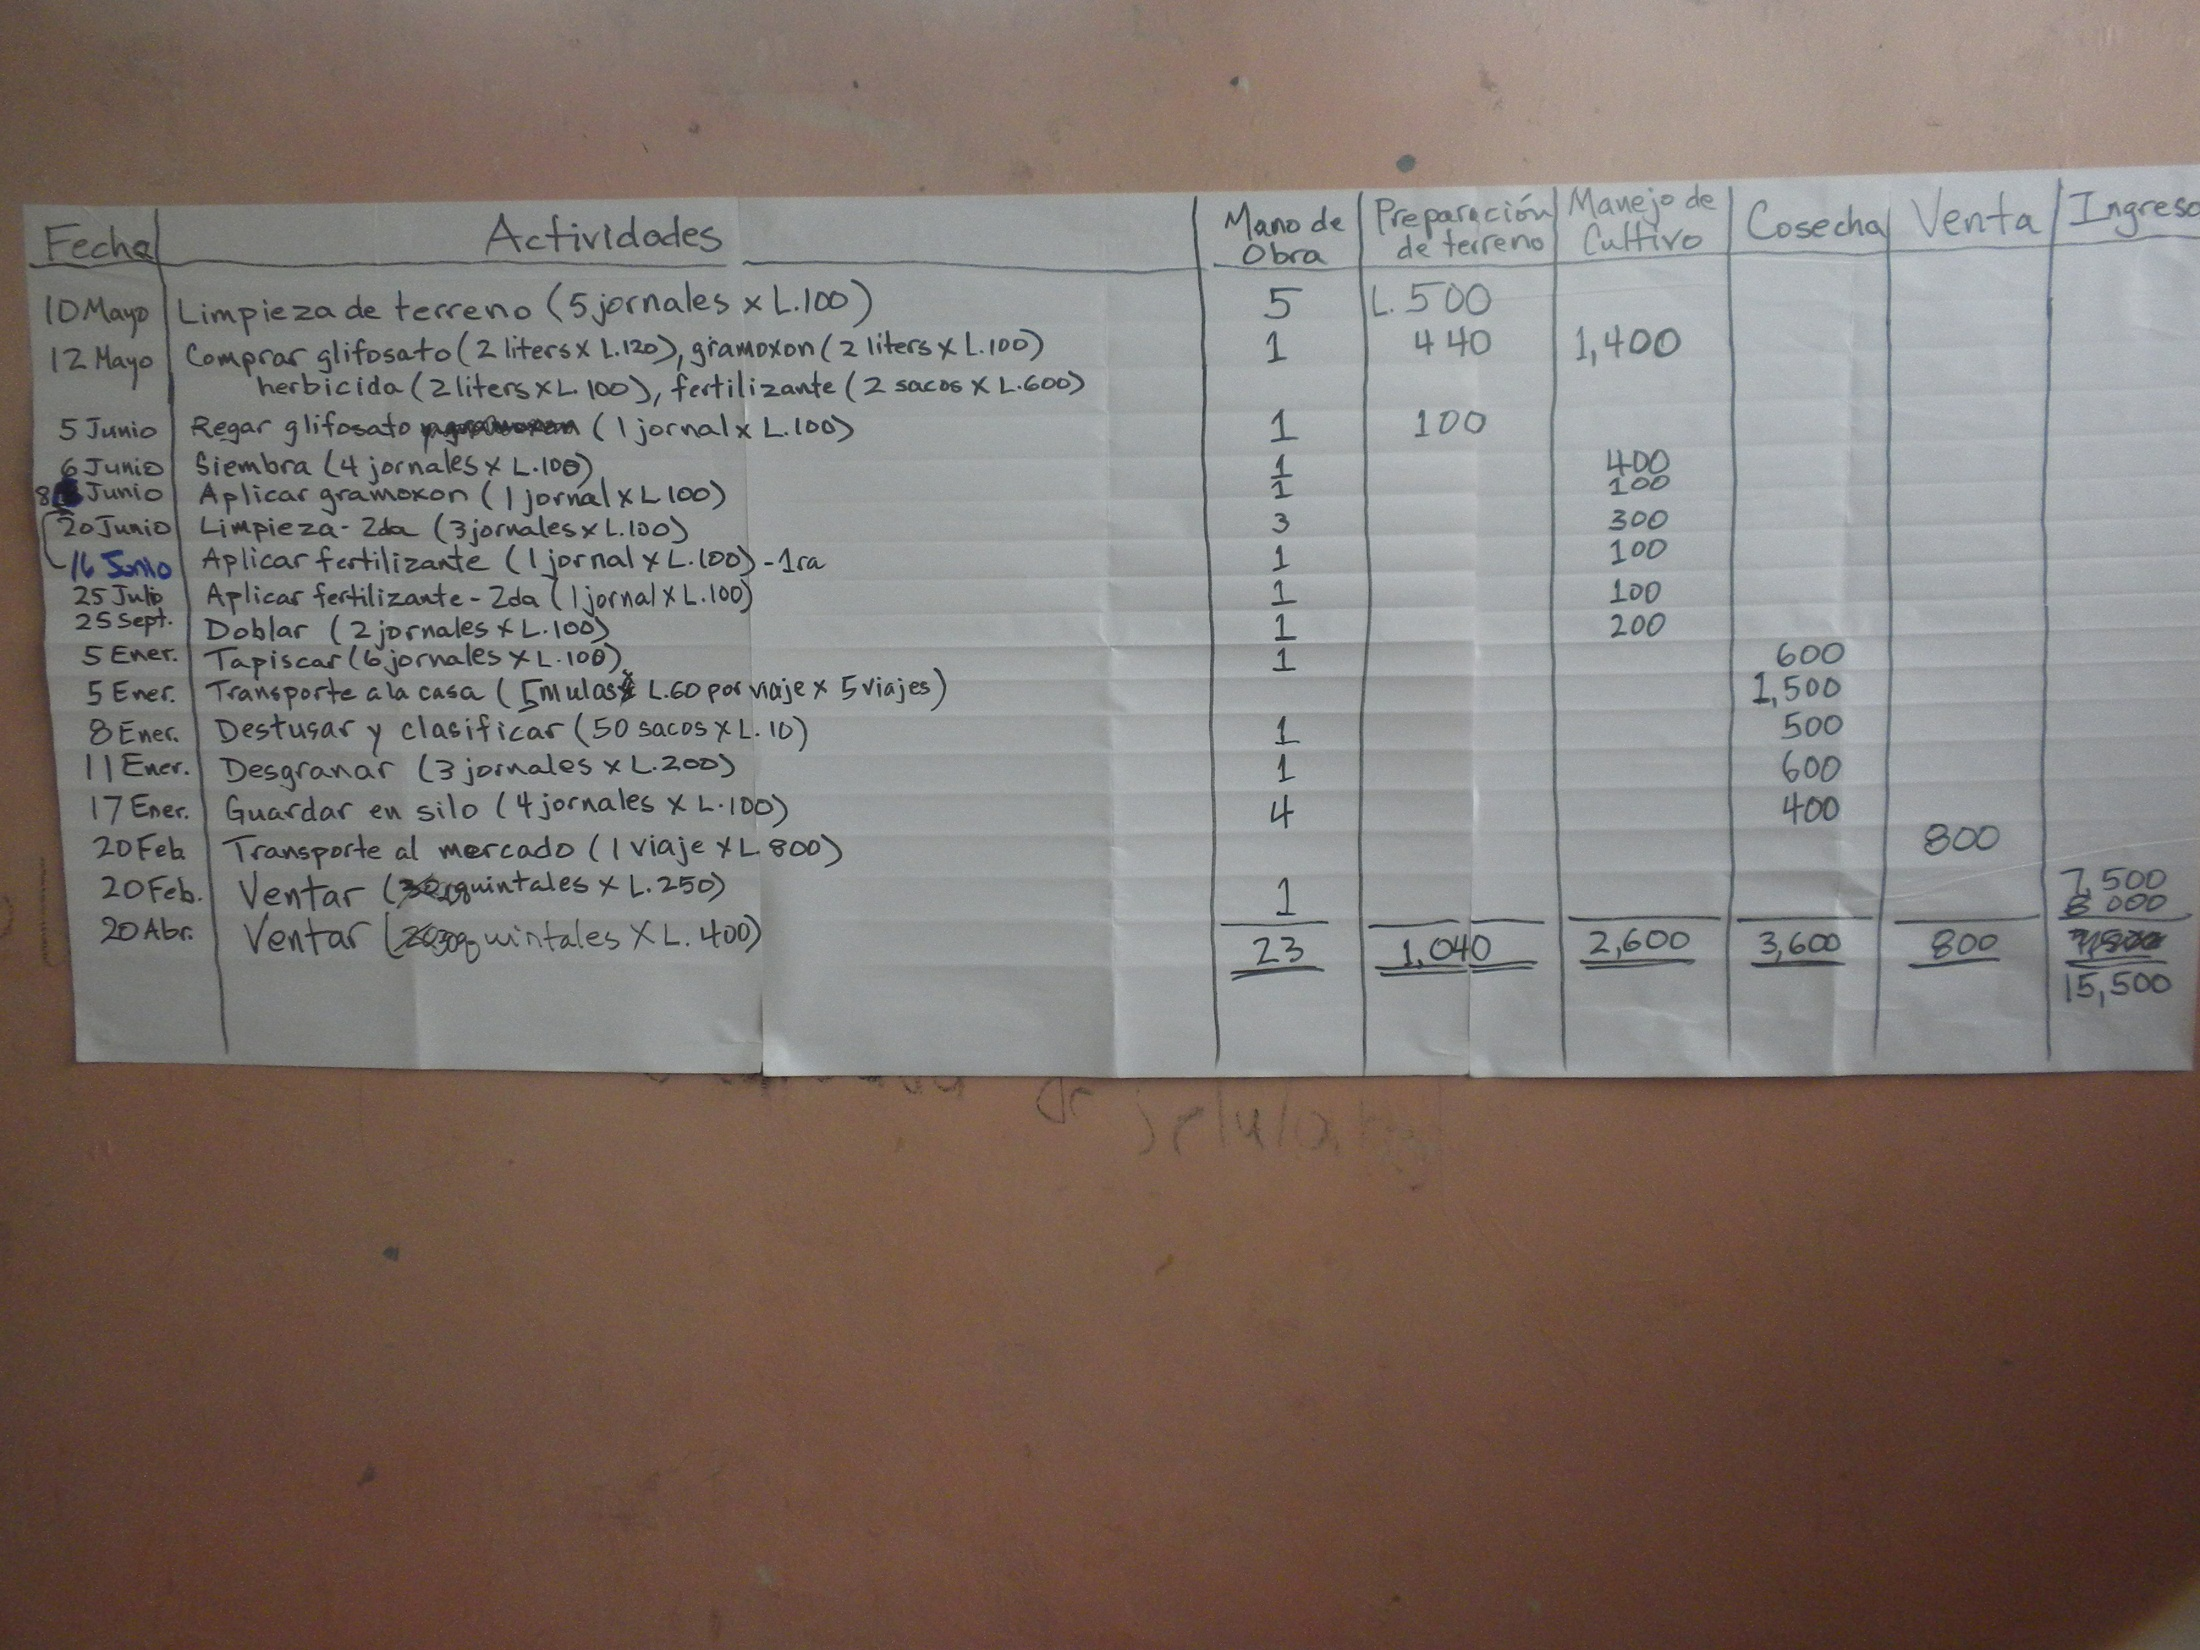 Fecha Actividades Mano de Obra Preparación de terreno Manejo de Cultivo Cosecha Venta Ingreso
10 Mayo Limpieza de terreno (5 jornales x L.100) 5 L.500
12 Mayo Comprar glifosato (2 liters x L.120), gramoxon (2 liters x L.100) 1 440 1,400
herbicida (2 liters x L.100), fertilizante (2 sacos x L.600)
5 Junio Regar glifosato (1 jornal x L.100) 1 100
6 Junio Siembra (4 jornales x L.100) 1 400
8 Junio Aplicar gramoxon (1 jornal x L100) 1 100
20 Junio Limpieza - 2da (3 jornales x L.100) 3 300
16 Junio Aplicar fertilizante (1 jornal x L.100) - 1ra 1 100
25 Julio Aplicar fertilizante - 2da (1 jornal x L.100) 1 100
25 Sept. Doblar (2 jornales x L.100) 1 200
5 Ener. Tapiscar (6 jornales x L.100) 1 600
5 Ener. Transporte a la casa (5 mulas x L.60 por viaje x 5 viajes) 1,500
8 Ener. Destusar y clasificar (50 sacos x L.10) 1 500
11 Ener. Desgranar (3 jornales x L.200) 1 600
17 Ener. Guardar en silo (4 jornales x L.100) 4 400
20 Feb Transporte al mercado (1 viaje x L 800) 800
20 Feb. Ventar (quintales x L.250) 1 7,500
20 Abr. Ventar (quintales x L.400) 8 000
23 1,040 2,600 3,600 800
15,500